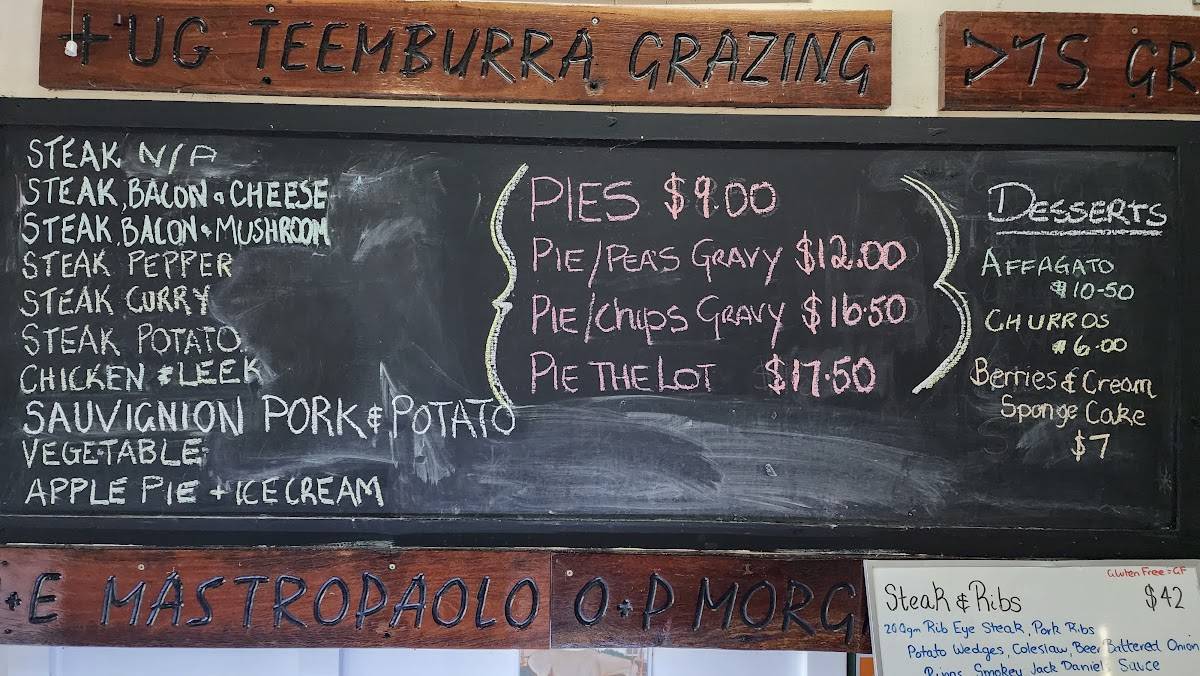 +'UG TEEMBURRA GRAZING
>1S GR
STEAK N/A
STEAK, BACON & CHEESE
STEAK, BACON & MUSHROOM
STEAK PEPPER
STEAK CURRY
STEAK POTATO
CHICKEN & LEEK
SAUVIGNION PORK & POTATO
VEGETABLE
APPLE PIE + ICE CREAM
PIES $9.00
PIE/PEAS GRAVY $12.00
PIE/CHIPS GRAVY $16.50
PIE THE LOT $17.50
DESSERTS
AFFAGATO
$10-50
CHURROS
$6.00
Berries & Cream
Sponge Cake
$7
+E MASTROPAOLO
O+P MORG
Gluten Free = GF
Steak & Ribs $42
200gm Rib Eye Steak, Pork Ribs
Potato Wedges, Coleslaw, Beer Battered Onion
Rings, Smokey Jack Daniels Sauce